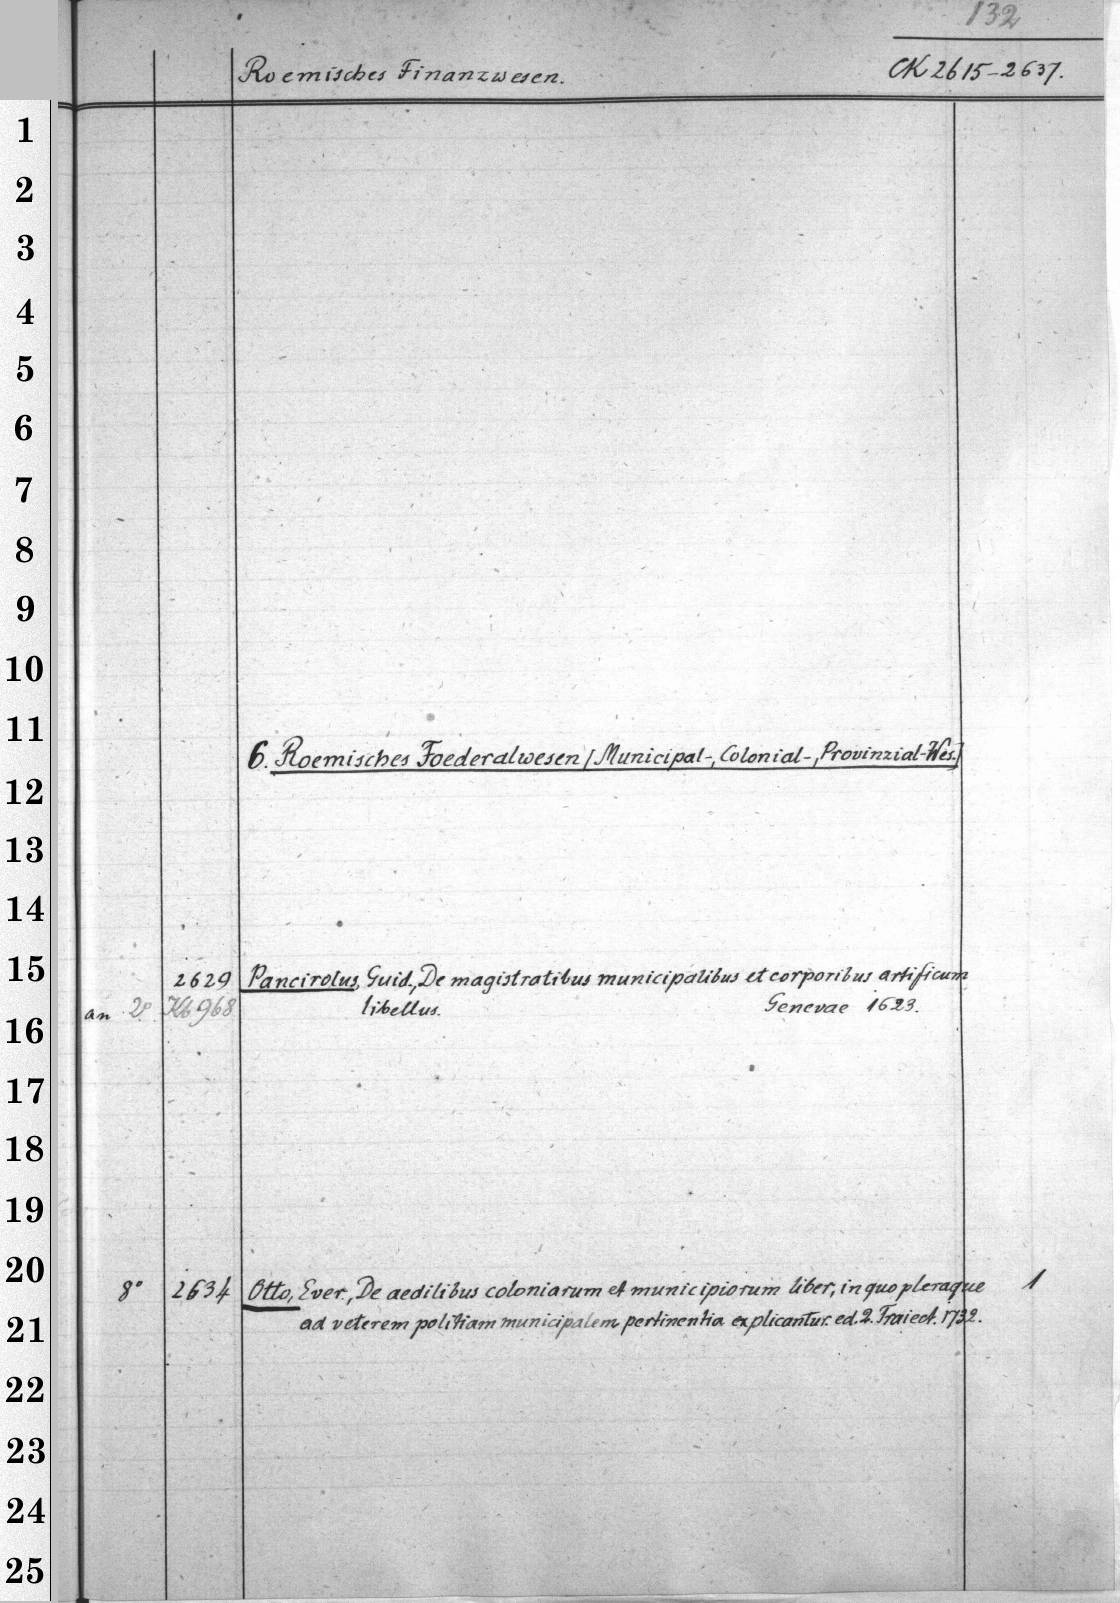 132
Roemisches Finanzwesen. CK 2615-2637.
1
2
3
4
5
6
7
8
9
10
11
6. Roemisches Foederalwesen (Municipal-, Colonial-, Provinzial-Wes.)
12
13
14
15 2629 Pancirolus, Guid., De magistratibus municipalibus et corporibus artificum
an 2° Kb 968 libellus. Genevae 1623.
16
17
18
19
20 8° 2634 Otto, Ever., De aedilibus coloniarum et municipiorum liber, in quo pleraque 1
21 ad veterem politiam municipalem pertinentia explicantur. ed. 2. Traiect. 1732.
22
23
24
25